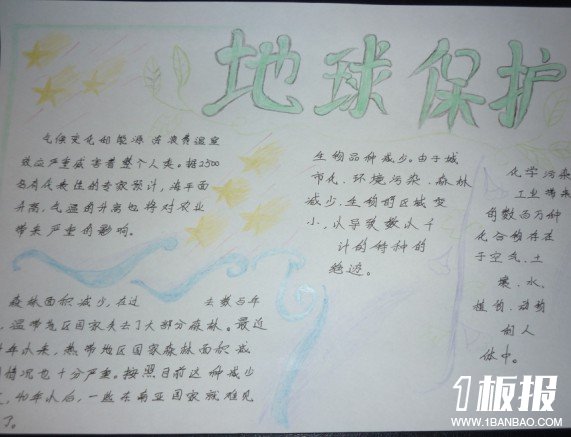 地球保护
气候变化和能源浪费温室
效应严重威害着整个人类。据2500
名有代表性的专家预计，海平面
升高，气温的升高也将对农业
带来严重的影响。
生物品种减少。由于城
市化、环境污染、森林
减少，生物的区域变
小，从导致数以千
计的物种的
绝迹。
化学污染
工业带来
的数百万种
化合物存在
于空气、土
壤、水、
植物、动物
和人
体中。
森林面积减少，在过 去数与年
，温带地区国家失去了大部分森林。最近
年以来，热带地区国家森林面积减
情况也十分严重。按照目前这种减少
，40年以后，一些东南亚国家就难见
了。
1板报
WWW.1BANBAO.COM